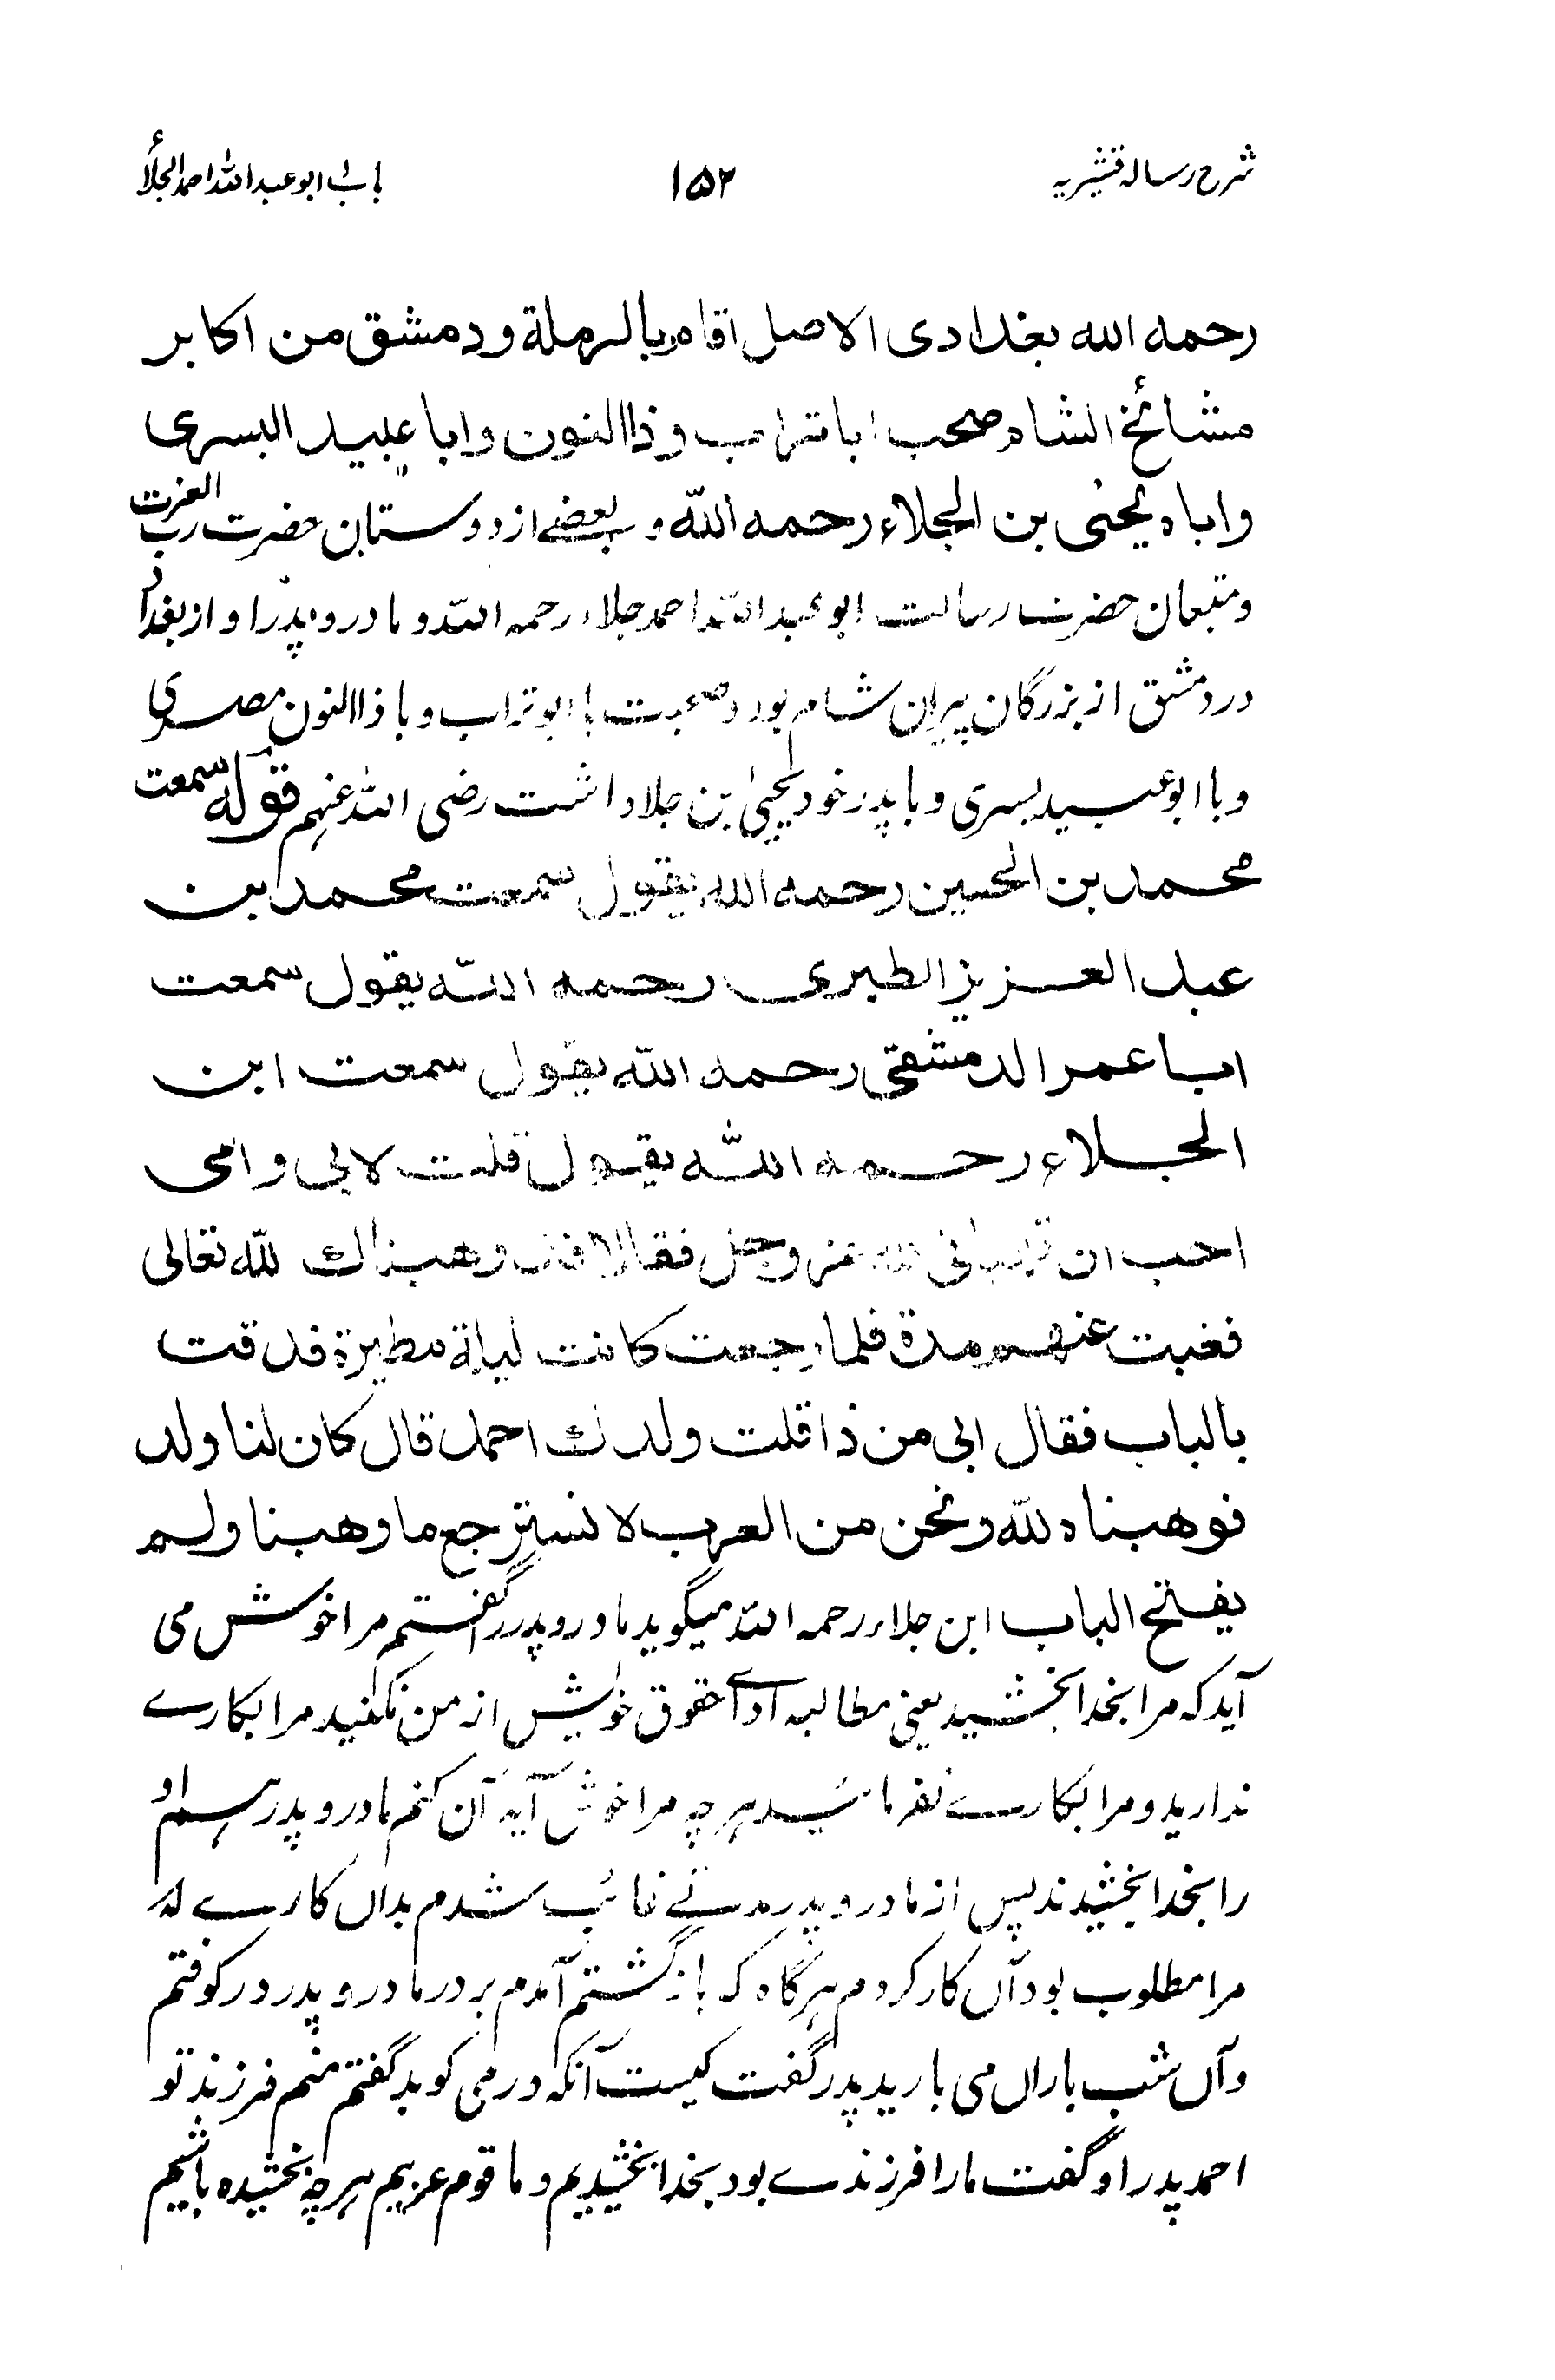 شرح رسالہ قشیریہ
۱۵۲
باب ابو عبد اللہ احمد الجلأ
رحمه الله بغدادی الاصل اقام بالرملة و دمشق من اکابر
مشائخ الشام صحب ابا تراب و ذا النون و ابا عبید البسری
و اباہ یحیی بن الجلاء رحمه الله و بعضے از دوستان حضرت رب العزت
و متبعان حضرت رسالت ابو عبد اللہ احمد جلاء رحمہ اللہ و مادر و پدر او از بغداد
در دمشق از بزرگان پیران شام بود و صحبت با ابو تراب و با ذا النون مصری
و با ابو عبید بسری و با پدر خود یحییٰ بن جلا داشت رضی اللہ عنہم قوله سمعت
محمد بن الحسین رحمه الله یقول سمعت محمد بن
عبد العزیز الطبری رحمه الله یقول سمعت
ابا عمر الدمشقی رحمه الله یقول سمعت ابن
الجلاء رحمه الله یقول قلت لابی و امی
احب ان تهبانی لله عز و جل فقالا قد وهبناك لله تعالی
فغبت عنهم مدة فلما رجعت کانت لیلة مطیرة فدققت
بالباب فقال ابی من ذا قلت ولدك احمد قال کان لنا ولد
فوهبناه لله و نحن من العرب لا نسترجع ما وهبنا و لم
یفتح الباب ابن جلاء رحمہ اللہ میگوید مادر و پدر را گفتم مرا خوش می
آید کہ مرا بخدا بخشید یعنی مطالبہ ادائے حقوق خویش از من نکنید مرا بکارے
ندارید و مرا بکارے نفرمائید ہر چہ مرا خوش آید آن کنم مادر و پدر ہم او
را بخدا بخشیدند پس از مادر و پدر مدتے غائب شدم بداں کارے کہ
مرا مطلوب بود آں کار کردم ہر گاہ کہ باز گشتم آمدم بر در مادر و پدر در کوفتم
و آں شب باراں می بارید پدر گفت کیست آنکہ در می کوبد گفتم منم فرزند تو
احمد پدر او گفت ما را فرزندے بود بخدا بخشیدیم و ما قوم عربیم ہر چہ بخشیدہ باشیم